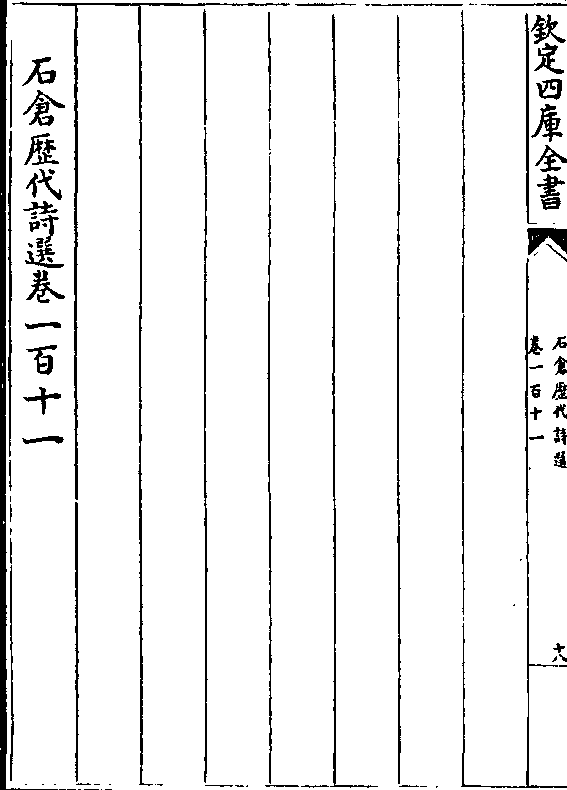 欽定四庫全書
石倉歷代詩選
卷一百十一
十八
石倉歷代詩選卷一百十一